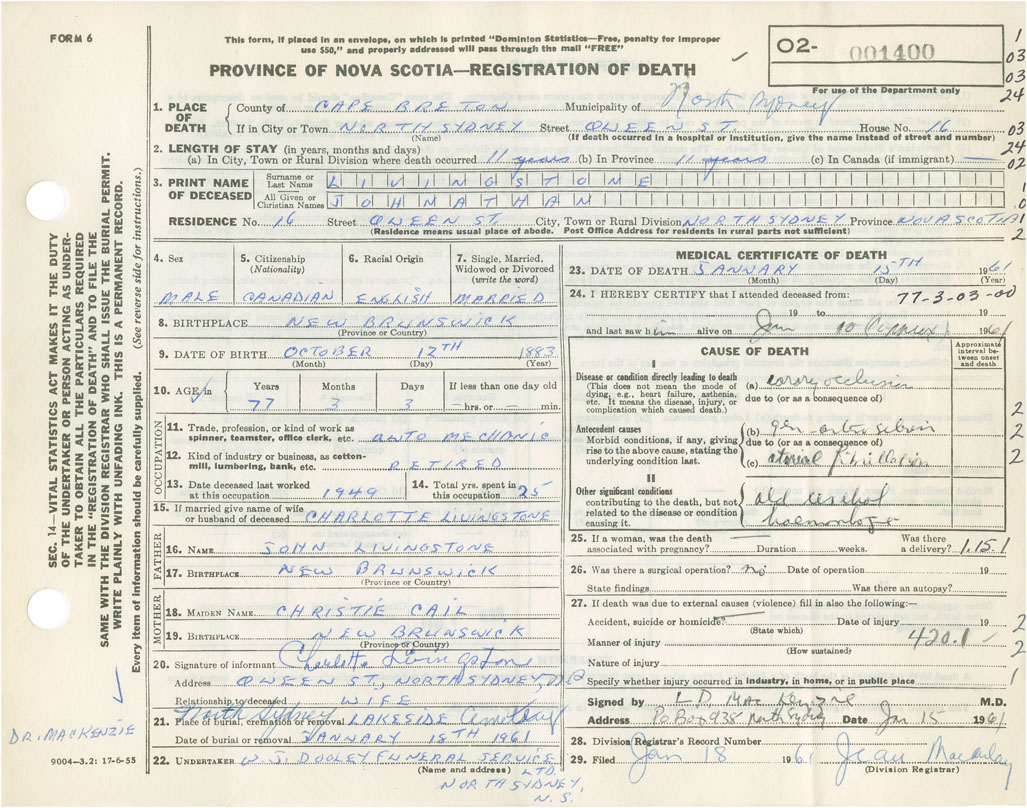 FORM 6
This form, if placed in an envelope, on which is printed "Dominion Statistics—Free, penalty for improper
use $50," and properly addressed will pass through the mail "FREE"
O2- 001400
For use of the Department only
PROVINCE OF NOVA SCOTIA—REGISTRATION OF DEATH
1
03
03
24
03
24
02
1
.0
1
2
1. PLACE OF DEATH
County of CAPE BRETON Municipality of North Sydney
If in City or Town NORTH SYDNEY Street QUEEN ST. House No. 16
(Name) (If death occurred in a hospital or institution, give the name instead of street and number)
2. LENGTH OF STAY (in years, months and days)
(a) In City, Town or Rural Division where death occurred 11 years (b) In Province 11 years (c) In Canada (if immigrant) —
3. PRINT NAME OF DECEASED
Surname or Last Name LIVINGSTONE
All Given or Christian Names JOHNATHAN
RESIDENCE No. 16 Street QUEEN ST. City, Town or Rural Division NORTH SYDNEY Province NOVA SCOTIA
(Residence means usual place of abode. Post Office Address for residents in rural parts not sufficient)
4. Sex
MALE
5. Citizenship
(Nationality)
CANADIAN
6. Racial Origin
ENGLISH
7. Single, Married,
Widowed or Divorced
(write the word)
MARRIED
8. BIRTHPLACE NEW BRUNSWICK
(Province or Country)
9. DATE OF BIRTH OCTOBER 12TH 1883
(Month) (Day) (Year)
10. AGE
Years Months Days If less than one day old
77 3 3 — hrs. or — min.
OCCUPATION
11. Trade, profession, or kind of work as
spinner, teamster, office clerk, etc. AUTO MECHANIC
12. Kind of industry or business, as cotton-
mill, lumbering, bank, etc. RETIRED
13. Date deceased last worked
at this occupation 1949
14. Total yrs. spent in
this occupation 25
15. If married give name of wife
or husband of deceased CHARLOTTE LIVINGSTONE
FATHER
16. NAME JOHN LIVINGSTONE
17. BIRTHPLACE NEW BRUNSWICK
(Province or Country)
MOTHER
18. MAIDEN NAME CHRISTIE CAIL
19. BIRTHPLACE NEW BRUNSWICK
(Province or Country)
20. Signature of informant Charlotte Livingstone
Address QUEEN ST., NORTH SYDNEY,
Relationship to deceased WIFE
21. Place of burial, cremation or removal North Sydney LAKESIDE Cemetery
Date of burial or removal JANUARY 18TH 1961
22. UNDERTAKER W. J. DOOLEY FUNERAL SERVICE
(Name and address) LTD.
NORTH SYDNEY,
N.S.
MEDICAL CERTIFICATE OF DEATH
23. DATE OF DEATH JANUARY 15TH 1961
(Month) (Day) (Year)
24. I HEREBY CERTIFY that I attended deceased from: 77-3-03-00
19 to 19
and last saw him alive on Jan 10 1961
CAUSE OF DEATH
Approximate
interval be-
tween onset
and death
I
Disease or condition directly leading to death
(This does not mean the mode of
dying, e.g., heart failure, asthenia,
etc. It means the disease, injury, or
complication which caused death.)
(a) occlusion
due to (or as a consequence of)
Antecedent causes
Morbid conditions, if any, giving
rise to the above cause, stating the
underlying condition last.
(b) gen
due to (or as a consequence of)
(c) fibrillation
II
Other significant conditions
contributing to the death, but not
related to the disease or condition
causing it.
old cerebral
haemorrhage
2
2
2
25. If a woman, was the death
associated with pregnancy? Duration weeks. Was there
a delivery? 1.15.1
26. Was there a surgical operation? No Date of operation 19
State findings Was there an autopsy?
27. If death was due to external causes (violence) fill in also the following:—
Accident, suicide or homicide? Date of injury 19
(State which)
Manner of injury 420.1
(How sustained)
Nature of injury
Specify whether injury occurred in industry, in home, or in public place
2
2
1
Signed by L.D. M.D.
Address P.O. Box 938 North Sydney Date Jan 15 1961
28. Division Registrar's Record Number
29. Filed Jan 18 1961 Jean Macaulay
(Division Registrar)
SEC. 14—VITAL STATISTICS ACT MAKES IT THE DUTY
OF THE UNDERTAKER OR PERSON ACTING AS UNDER-
TAKER TO OBTAIN ALL THE PARTICULARS REQUIRED
IN THE "REGISTRATION OF DEATH" AND TO FILE THE
SAME WITH THE DIVISION REGISTRAR WHO SHALL ISSUE THE BURIAL PERMIT.
WRITE PLAINLY WITH UNFADING INK. THIS IS A PERMANENT RECORD.
Every item of information should be carefully supplied. (See reverse side for instructions.)
DR. MACKENZIE
9004—3.2: 17-6-55